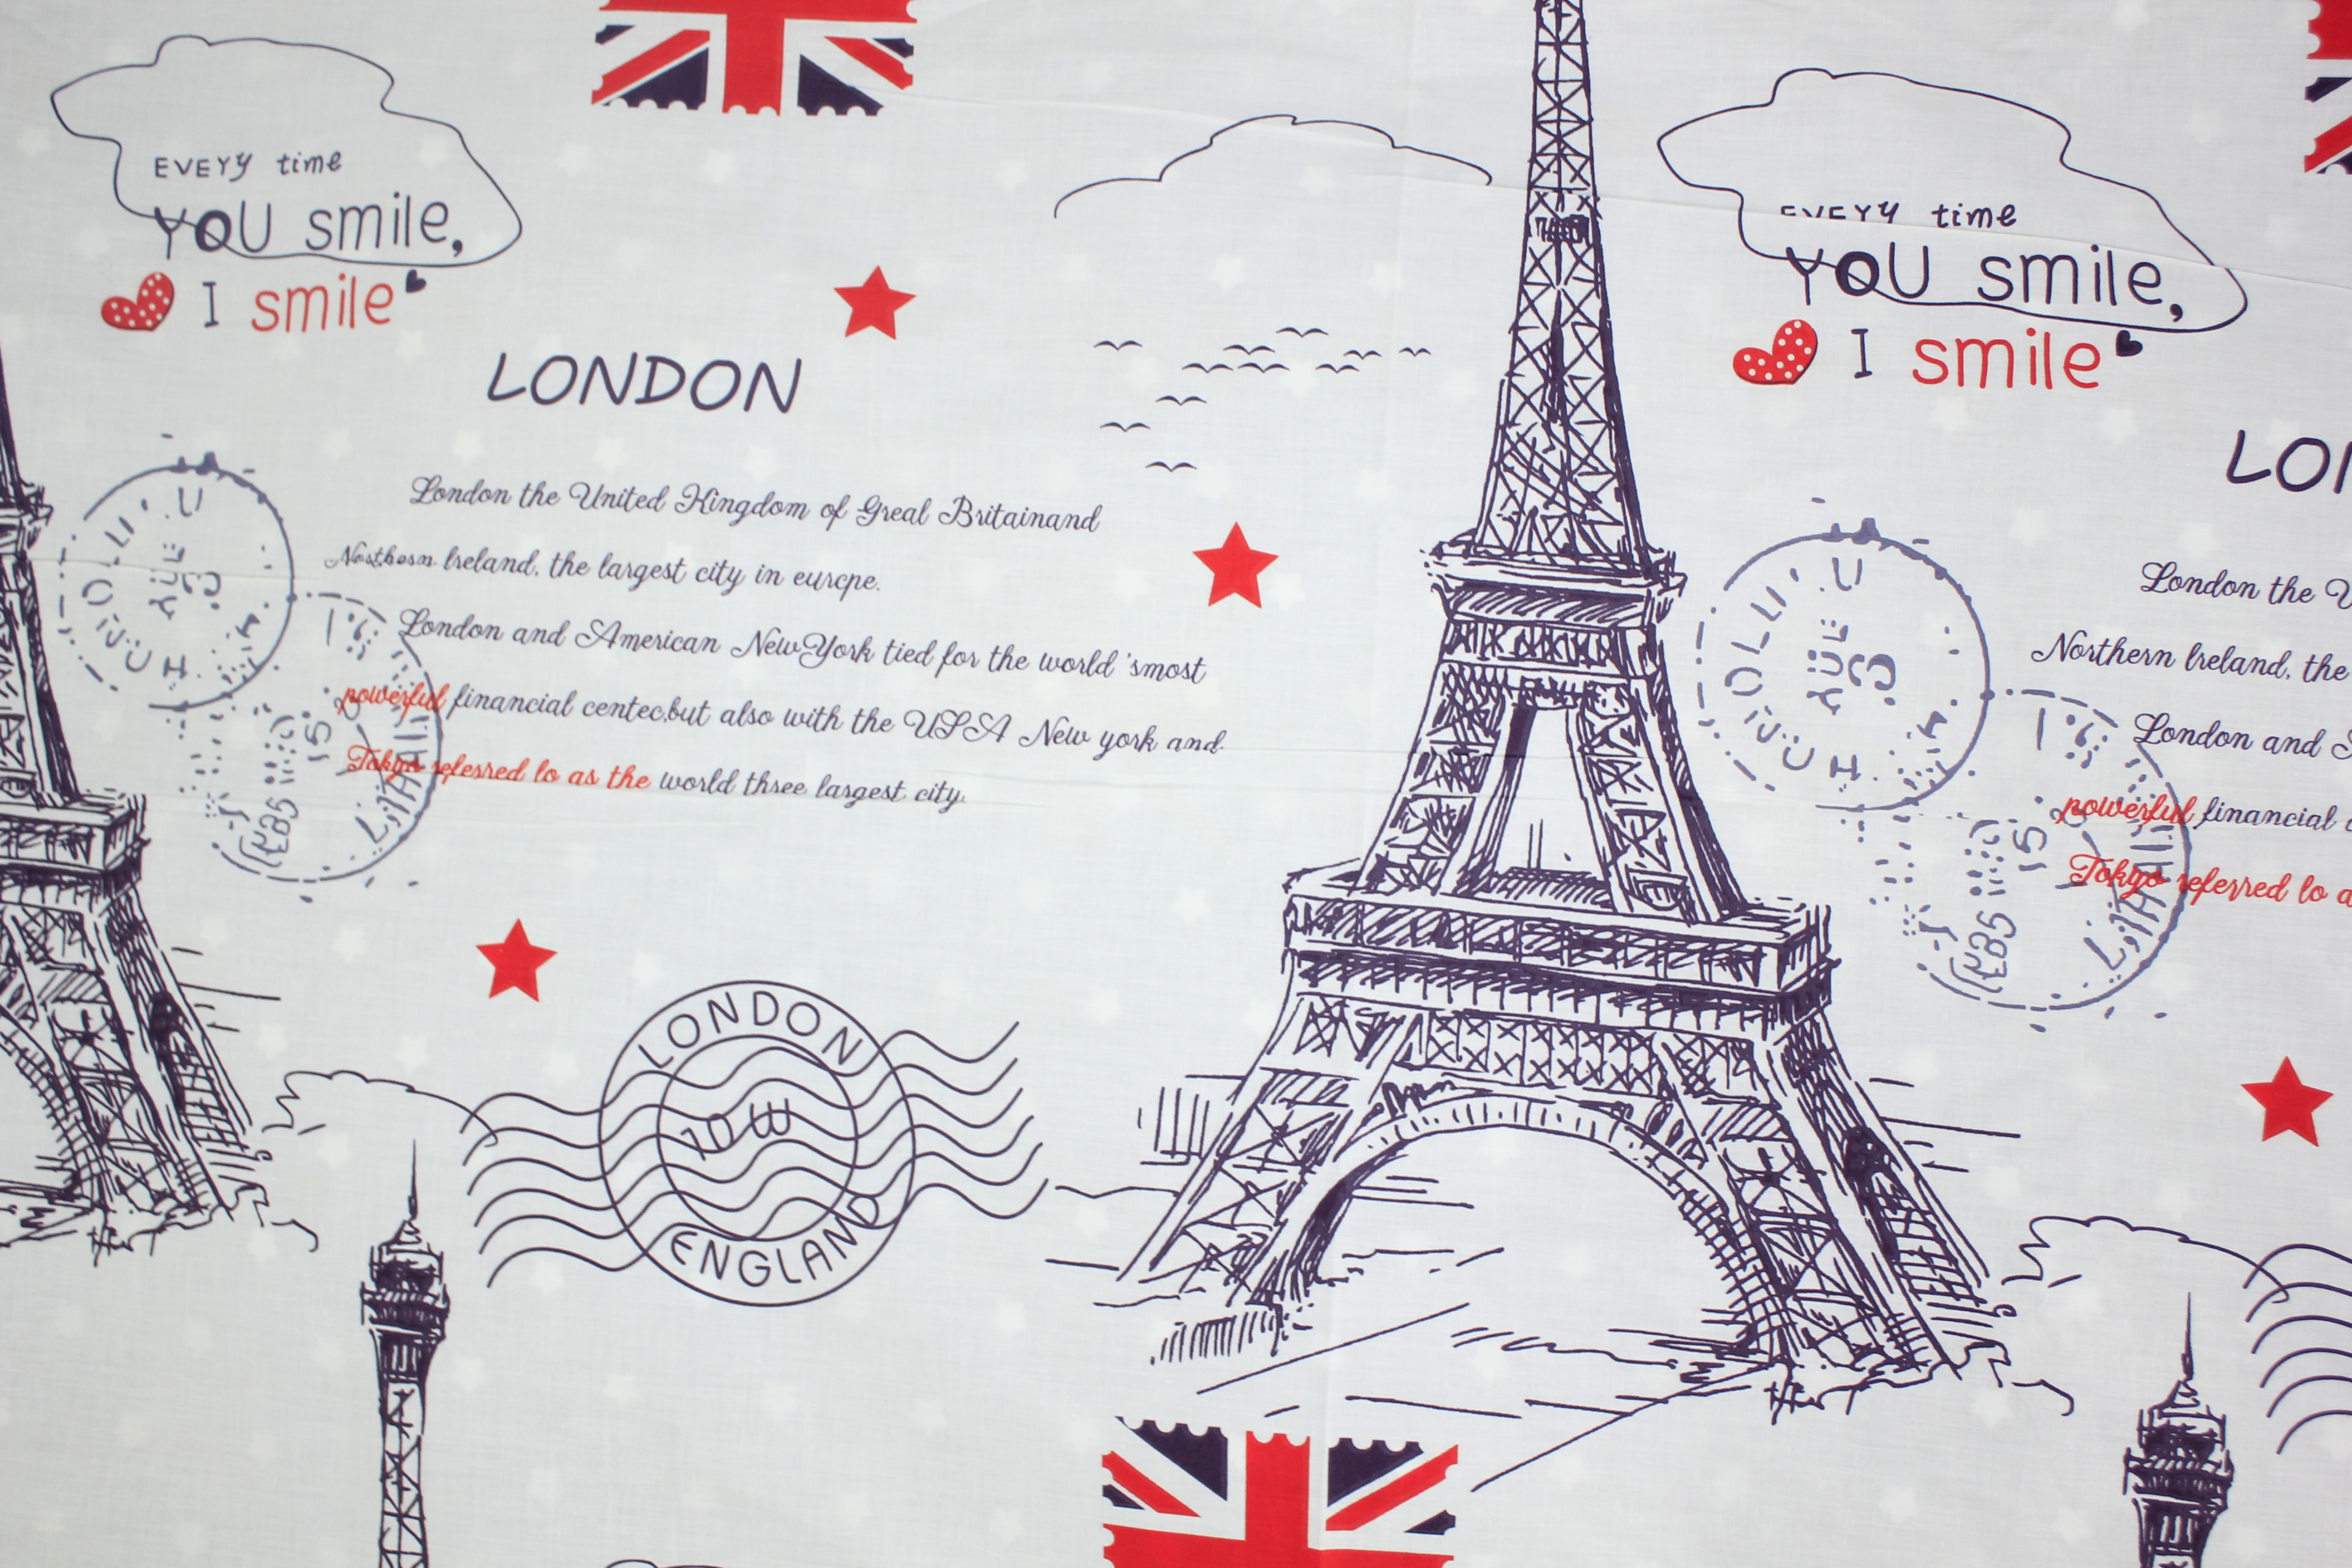 EVEYY time
YOU smile,
I smile
LONDON
London the United Kingdom of Greal Britainand
Northern lreland, the largest city in eurcpe.
London and American NewYork tied for the world 'smost
powerful financial centec,but also with the USA New york and
Tokyo referred lo as the world three largest city.
LONDON
10 W
ENGLAND
EVEYY time
YOU smile,
I smile
LON
London the U
Northern lreland, the
London and
powerful financial
Tokyo referred lo a